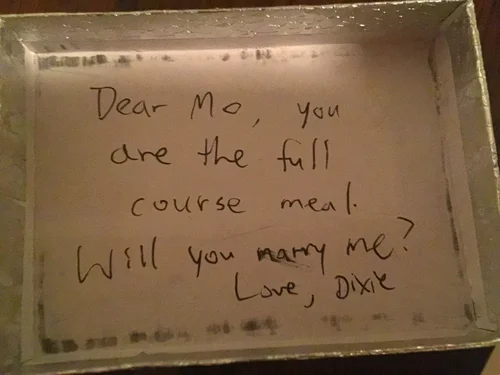 Dear Mo, you
are the full
course meal.
Will you marry me?
Love, Dixie